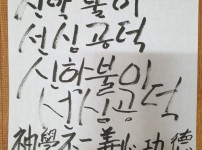 신학불이
선심공덕
신학불이
선심공덕
神學不二 善心功德